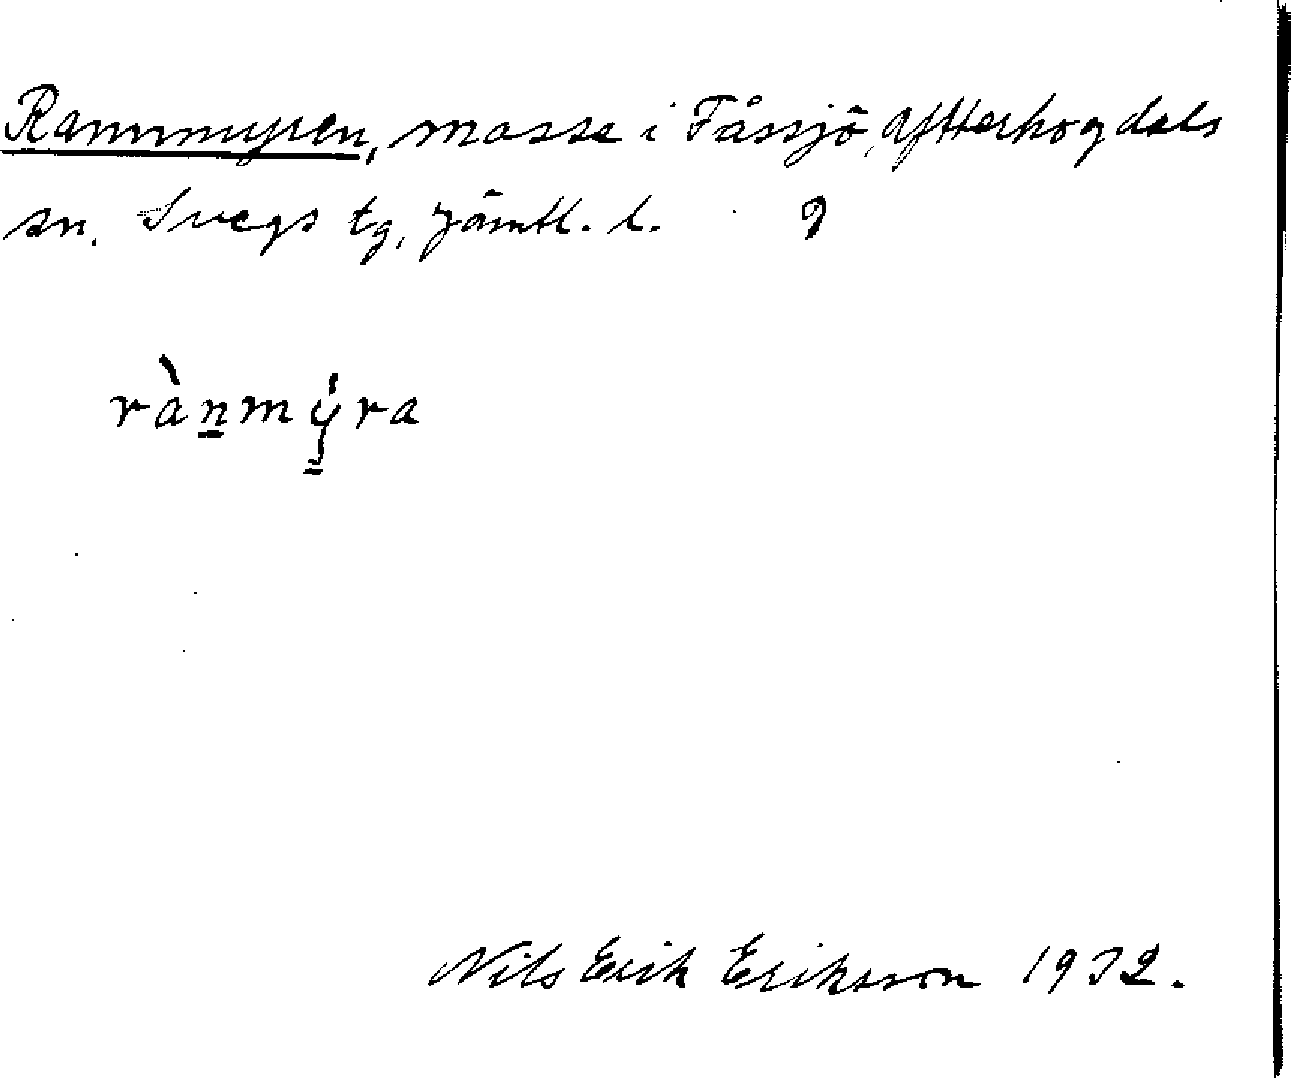 Rannmyren, mosse i Fåssjö, Ytterhogdals
sn. Svegs tg, Jämtl. l. 9
rànmýra
Nils Erik Eriksson 1932.